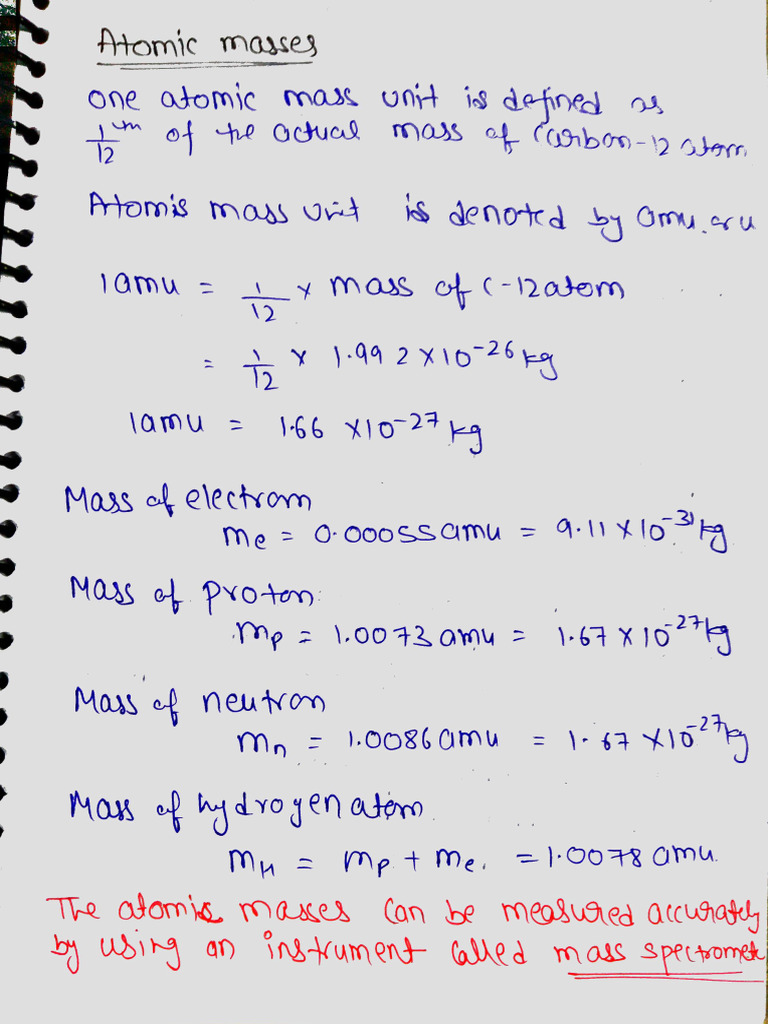 Atomic masses
one atomic mass unit is defined as
1/12 th of the actual mass of Carbon-12 atom
Atomis mass unit is denoted by amu. or u
1amu = 1/12 × mass of C-12 atom
= 1/12 × 1.992 × 10⁻²⁶ kg
1amu = 1.66 × 10⁻²⁷ kg
Mass of electron
me = 0.00055 amu = 9.11 × 10⁻³¹ kg
Mass of proton
mp = 1.0073 amu = 1.67 × 10⁻²⁷ kg
Mass of neutron
mn = 1.0086 amu = 1.67 × 10⁻²⁷ kg
Mass of hydrogen atom
mH = mp + me. = 1.0078 amu.
The atomic masses can be measured accurately
by using an instrument called mass spectromet